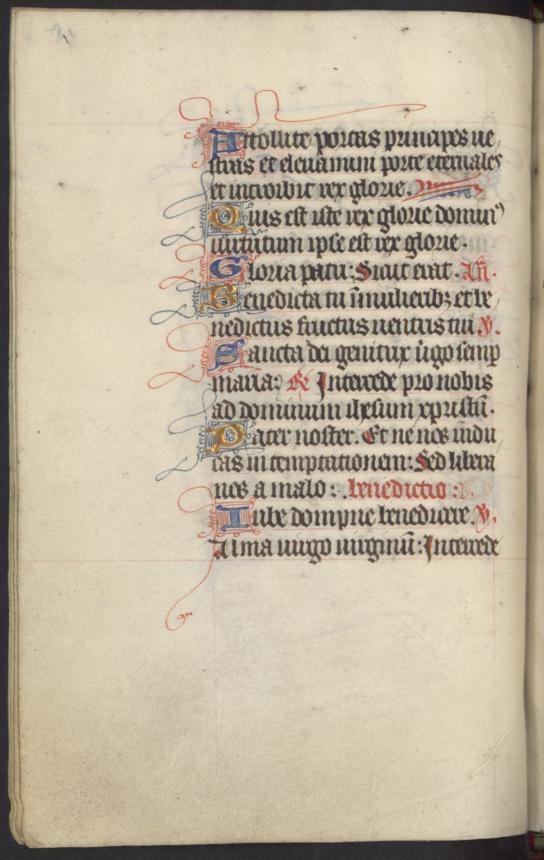 Attollite portas principes ve
stras et elevamini porte eternales
et introibit rex glorie.
Quis est iste rex glorie domin⁹
virtutum ipse est rex glorie.
Gloria patri: Sicut erat. An̄.
Benedicta tu ī mulieribꝫ et be
nedictus fructus ventris tui. ℣.
Sancta dei genitrix v̄go semp
maria: ℟ Intercede pro nobis
ad dominum ihesum xpristū.
Pater noster. Et ne nos īndu
cas in temptationem: Sed libera
nos a malo: benedictio:
Iube dompne benedicere. ℣.
Alma virgo virginū: Intercede